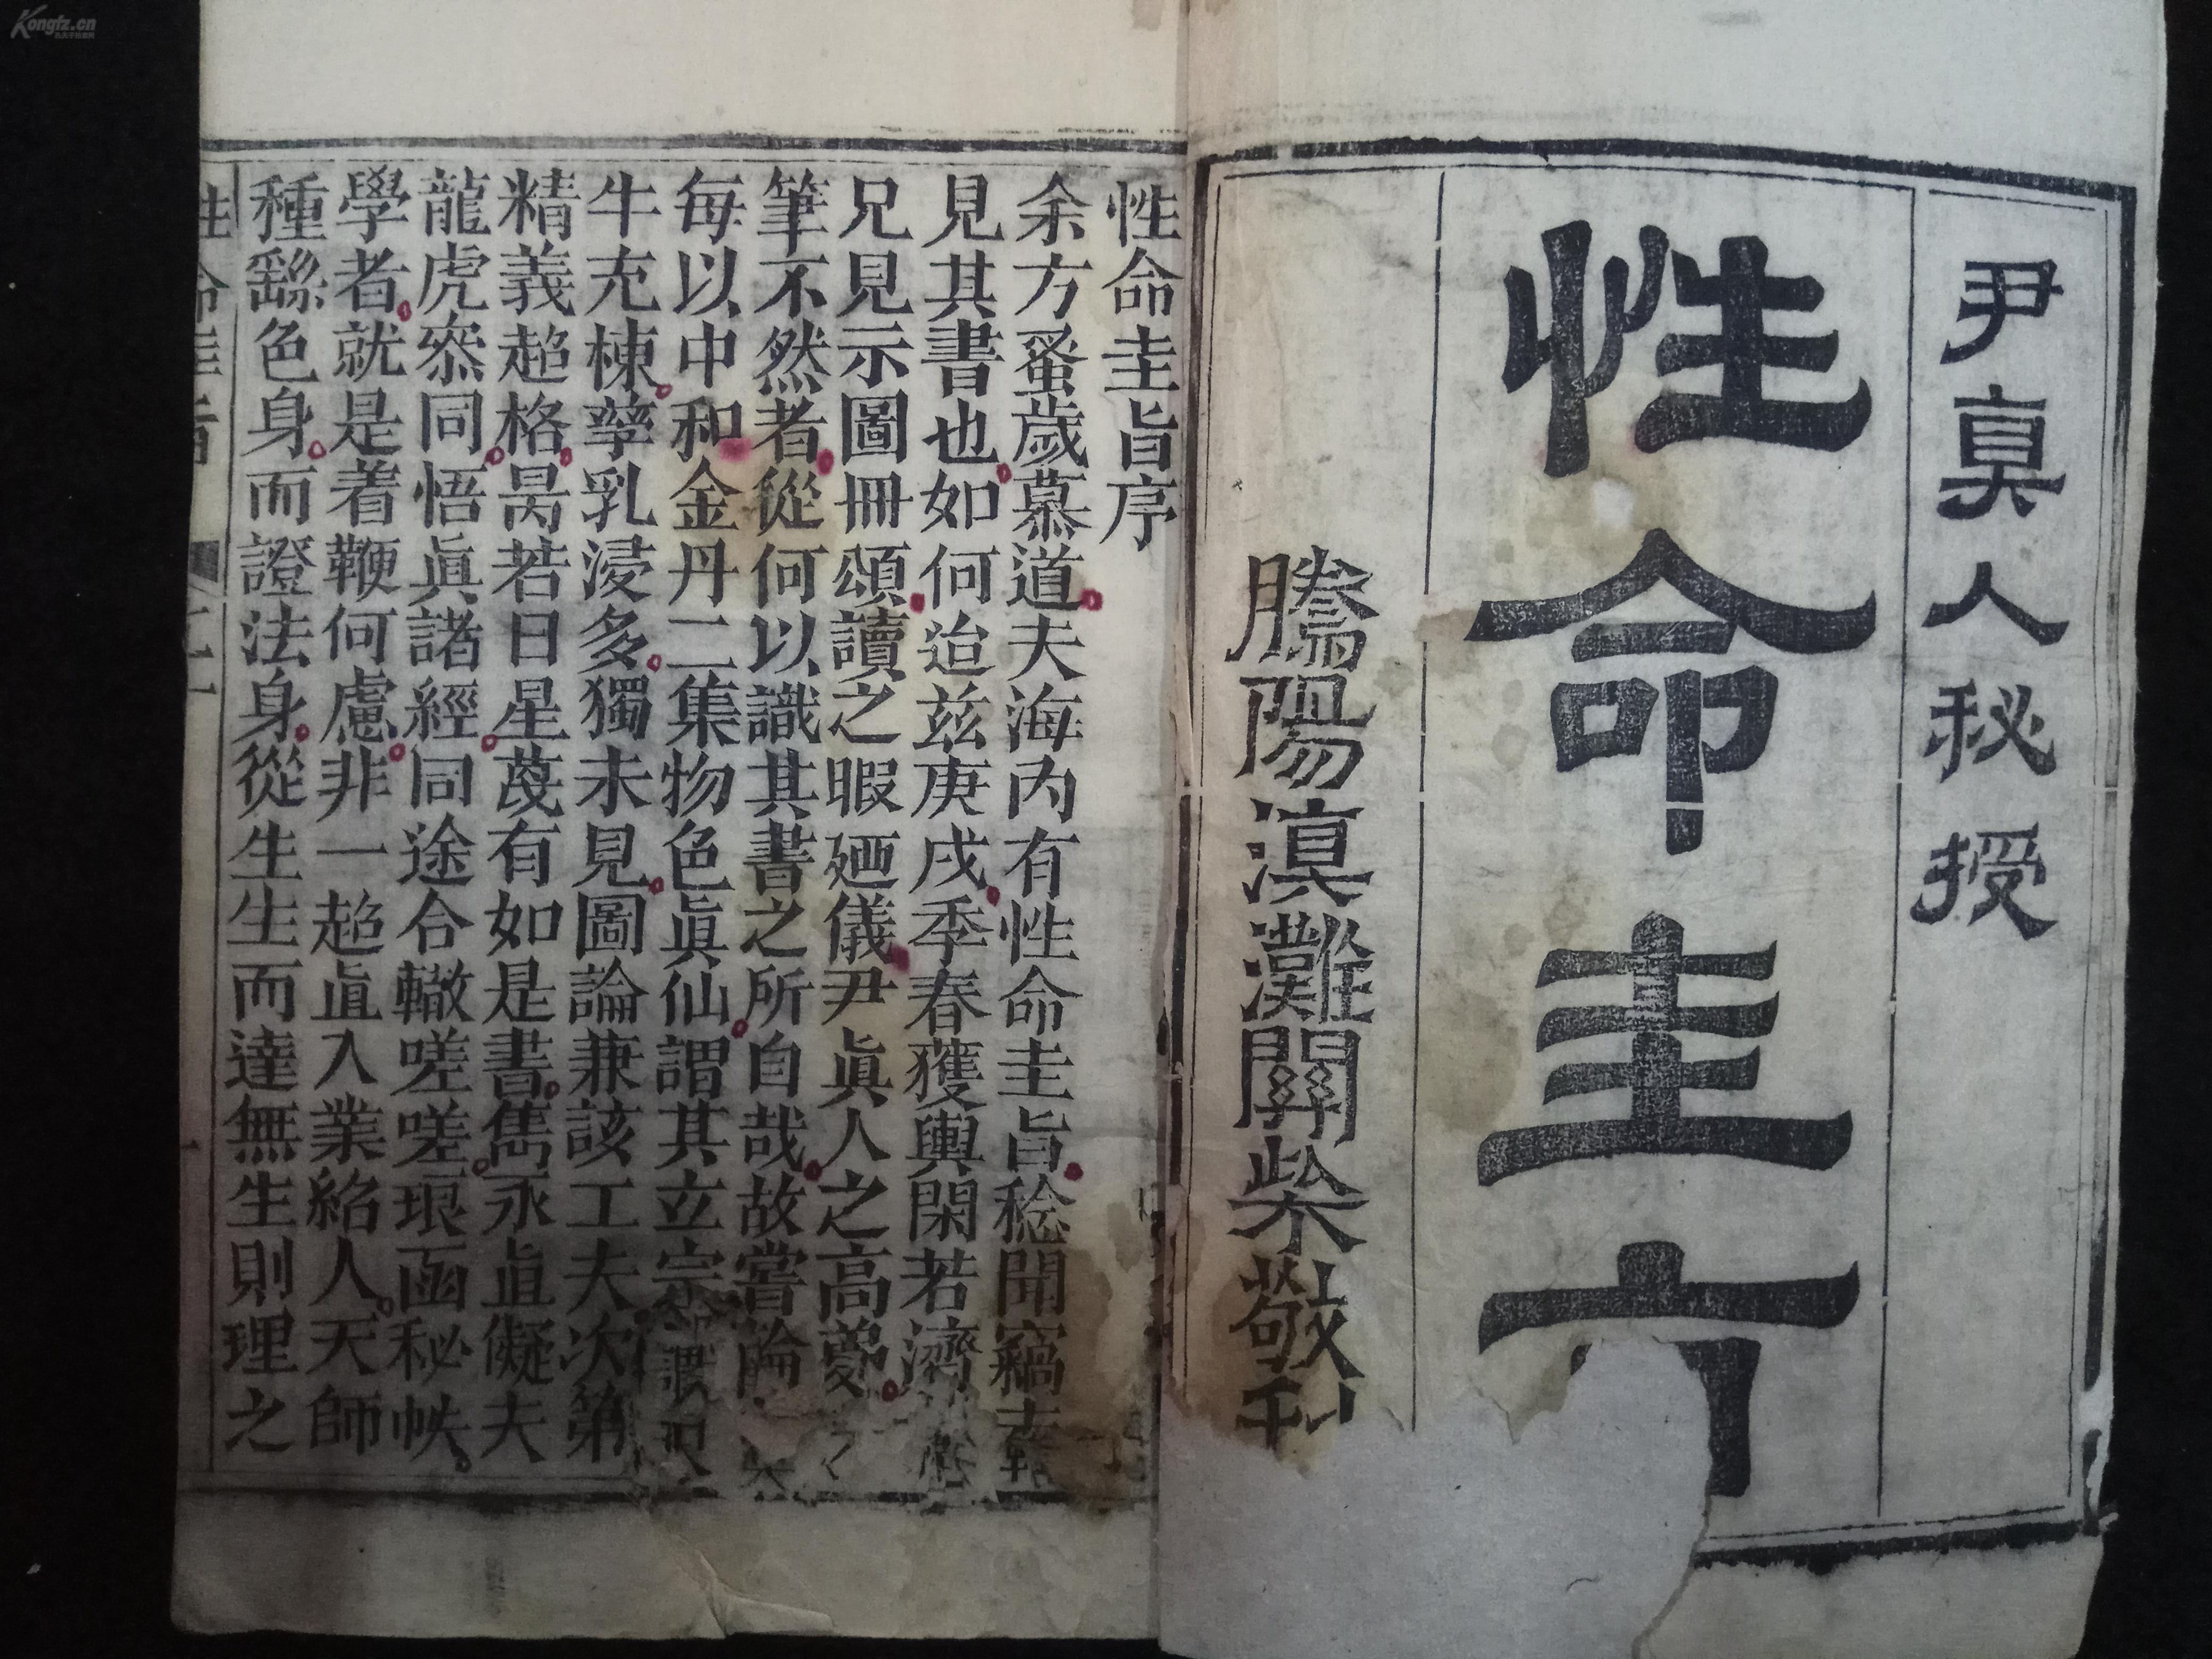 Kongfz.cn
尹真人秘授
性命圭
騰陽滇灘關柴敬刊
性命圭旨序
余方蚤歲慕道夫海內有性命圭旨稔聞竊
見其書也如何迨茲庚戌季春獲輿閑若濟
兄見示圖冊頌讀之暇廼儀尹眞人之高
筆不然者從何以識其書之所自哉故嘗論
每以中和金丹二集物色眞仙謂其立宗
牛充棟孳乳浸多獨未見圖論兼該工夫次第
精義超格昺若日星蔑有如是書雋永直儗夫
龍虎叅同悟眞諸經同途合轍嗟嗟琅函秘帙
學者就是着鞭何慮非一超直入業紹人天師
種繇色身而證法身從生生而達無生則理之
性命圭旨